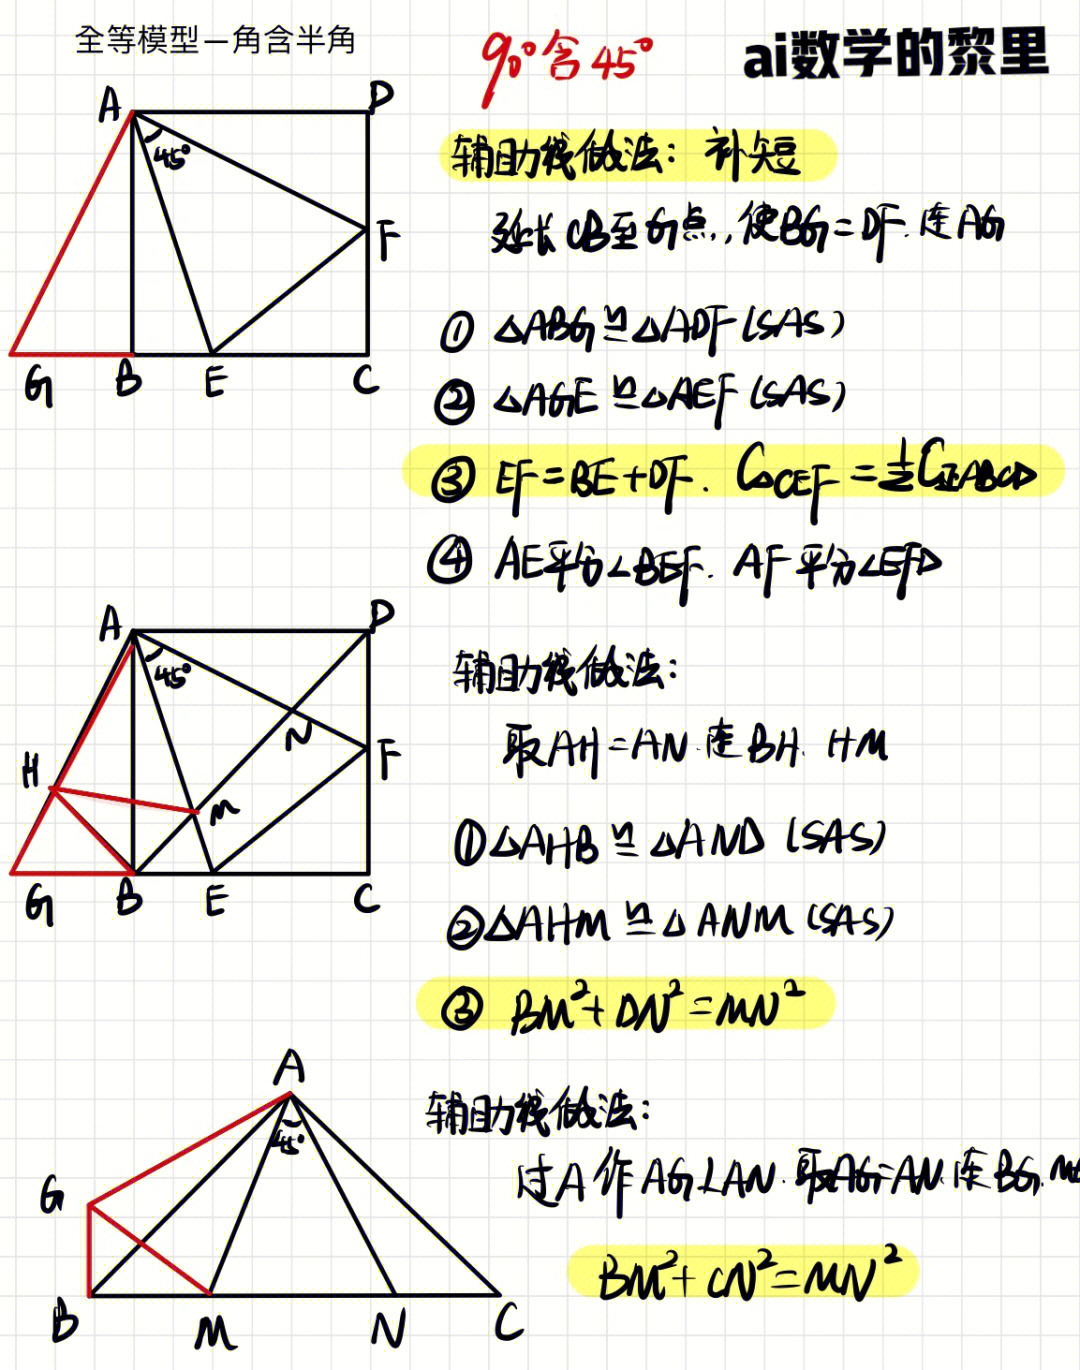 全等模型—角含半角
90°含45°
ai数学的黎里
A
D
45°
F
G
B
E
C
辅助线做法：补短
延长CB至G点，使BG=DF.连AG
① △ABG≌△ADF(SAS)
② △AGE≌△AEF(SAS)
③ EF=BE+DF. C△CEF=½C正ABCD
④ AE平分∠BEF. AF平分∠EFD
A
D
45°
N
H
F
M
G
B
E
C
辅助线做法：
取AH=AN.连BH.HM
①△AHB≌△AND(SAS)
②△AHM≌△ANM(SAS)
③ BM²+DN²=MN²
A
45°
G
B
M
N
C
辅助线做法：
过A作AG⊥AN.取AG=AN.连BG.
BM²+CN²=MN²